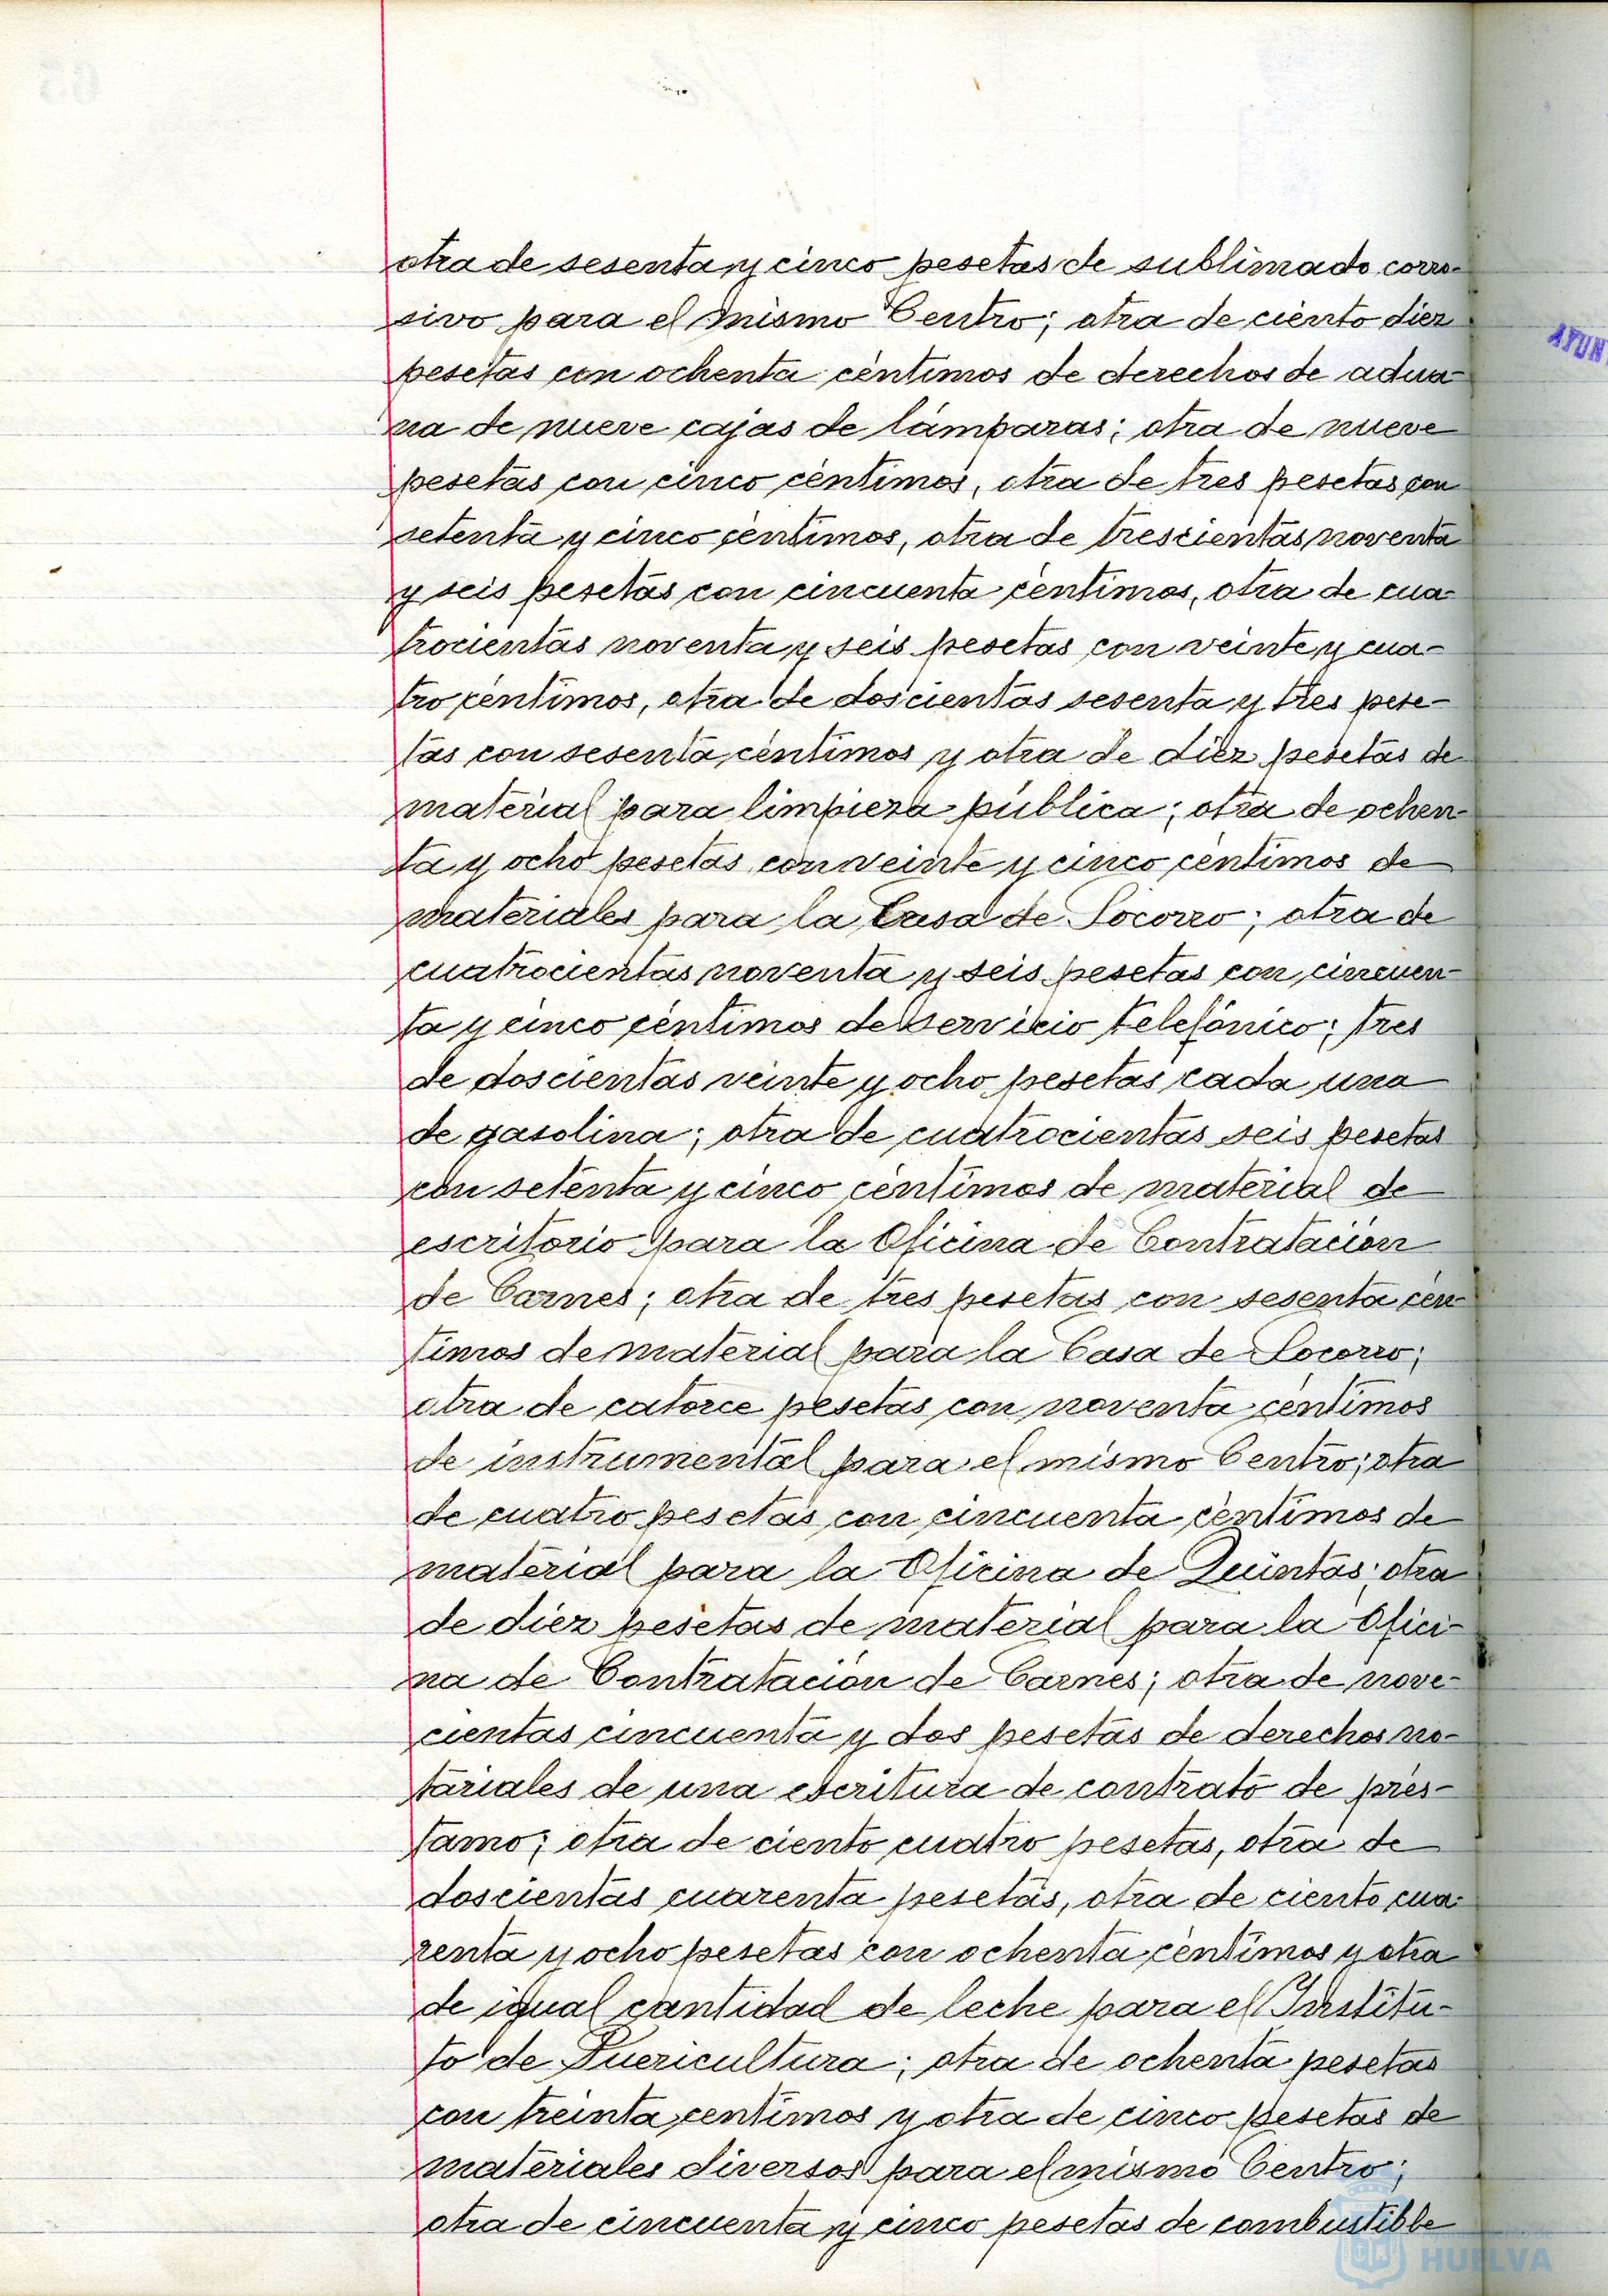 otra de sesenta y cinco pesetas de sublimado corro-
sivo para el mismo Centro; otra de ciento diez
pesetas con ochenta céntimos de derechos de adua-
na de nueve cajas de lámparas; otra de nueve
pesetas con cinco céntimos, otra de tres pesetas con
setenta y cinco céntimos, otra de trescientas noventa
y seis pesetas con cincuenta céntimos, otra de cua-
trocientas noventa y seis pesetas con veinte y cua-
tro céntimos, otra de doscientas sesenta y tres pese-
tas con sesenta céntimos y otra de diez pesetas de
material para limpieza pública; otra de ochen-
ta y ocho pesetas con veinte y cinco céntimos de
materiales para la Casa de Socorro; otra de
cuatrocientas noventa y seis pesetas con cincuen-
ta y cinco céntimos del servicio telefónico; tres
de doscientas veinte y ocho pesetas cada una
de gasolina; otra de cuatrocientas seis pesetas
con setenta y cinco céntimos de material de
escritorio para la Oficina de Contratación
de Carnes; otra de tres pesetas con sesenta cén-
timos de material para la Casa de Socorro;
otra de catorce pesetas con noventa céntimos
de instrumental para el mismo Centro; otra
de cuatro pesetas con cincuenta céntimos de
material para la Oficina de Quintas; otra
de diez pesetas de material para la Ofici-
na de Contratación de Carnes; otra de nove-
cientas cincuenta y dos pesetas de derechos no-
tariales de una escritura de contrato de prés-
tamo; otra de ciento cuatro pesetas, otra de
doscientas cuarenta pesetas, otra de ciento cua-
renta y ocho pesetas con ochenta céntimos y otra
de igual cantidad de leche para el Institu-
to de Puericultura; otra de ochenta pesetas
con treinta centimos y otra de cinco pesetas de
materiales diversos para el mismo Centro;
otra de cincuenta y cinco pesetas de combustible
AYUN
HUELVA